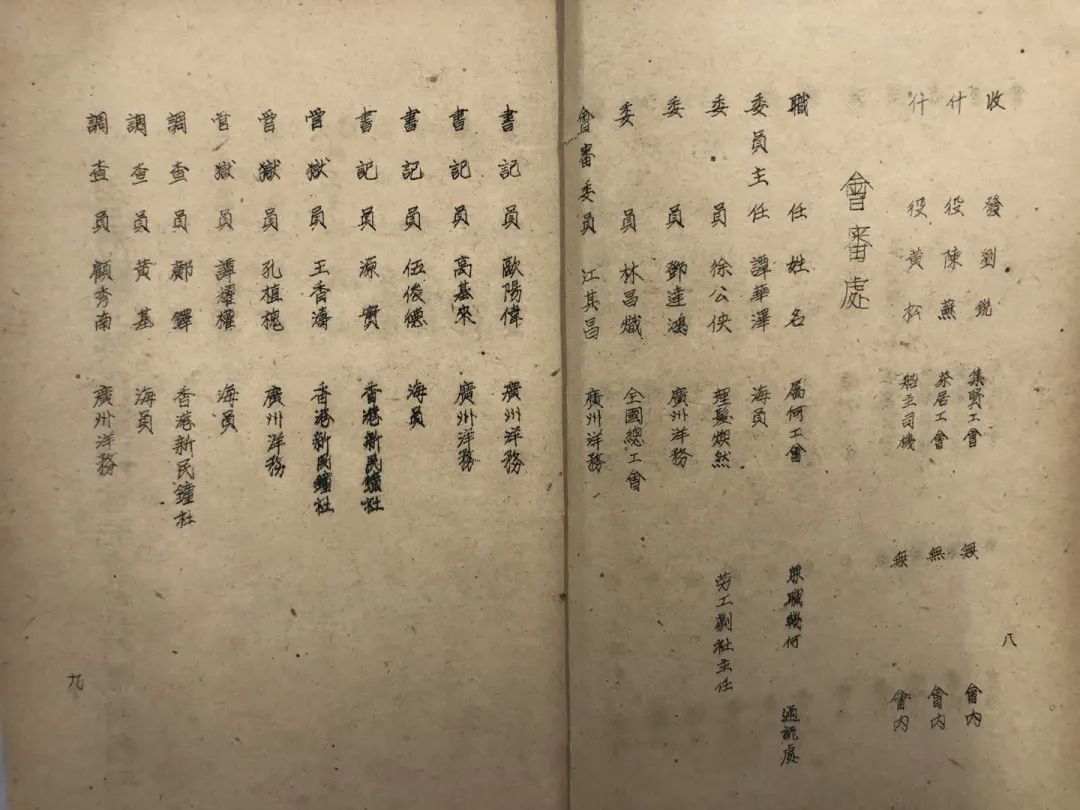 收發劉銳 集賢工會 無 會內
什役陳蘇 茶居工會 無 會內
什役黃松 船主司機 無 會內
會審處
職任姓名 屬何工會 兼職幾何 通訊處
委員主任譚華澤 海員
委員徐公俠 理髮煥然 勞工劇社主任
委員鄧達鴻 廣州洋務
委員林昌熾 全國總工會
會審委員江其昌 廣州洋務
八
書記員歐陽偉 廣州洋務
書記員高基來 廣州洋務
書記員伍俊德 海員
書記員源實 香港新民鐘社
管獄員王香濤 香港新民鐘社
管獄員孔植槐 廣州洋務
管獄員譚權 海員
調查員鄭鐸 香港新民鐘社
調查員黃基 海員
調查員顧秀南 廣州洋務
九